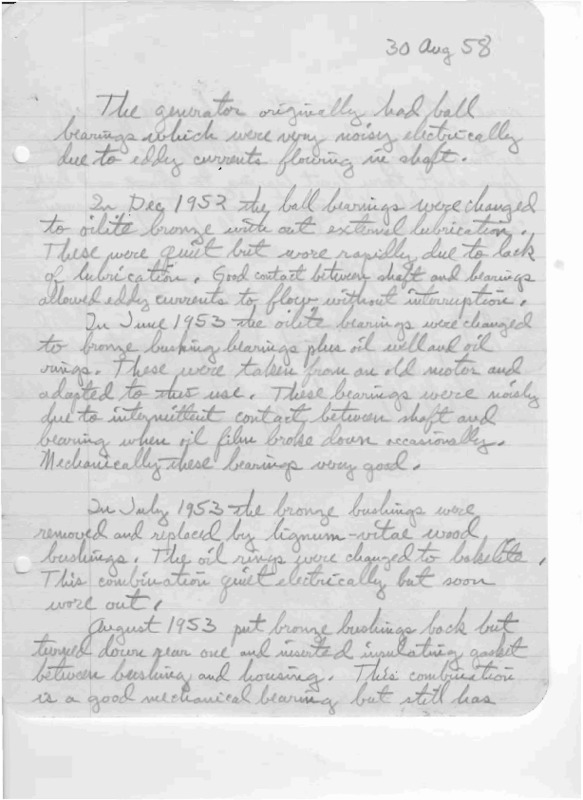 30 Aug 58
The generator originally had ball
bearings which were very noisy electrically
due to eddy currents flowing in shaft.
In Dec 1952 the ball bearings were changed
to oilite bronze with out external lubrication.
These were quiet but wore rapidly due to lack
of lubrication. Good contact between shaft and bearings
allowed eddy currents to flow without interruption.
In June 1953 the oilite bearings were changed
to bronze bushing bearings plus oil well and oil
rings. These were taken from an old motor and
adapted to this use. These bearings were noisy
due to intermittent contact between shaft and
bearing when oil film broke down occasionally.
Mechanically these bearings very good.
In July 1953 the bronze bushings were
removed and replaced by lignum-vitae wood
bushings. The oil rings were changed to bakelite.
This combination quiet electrically but soon
wore out.
August 1953 put bronze bushings back but
turned down rear one and inserted insulating gasket
between bushing and housing. This combination
is a good mechanical bearing but still has